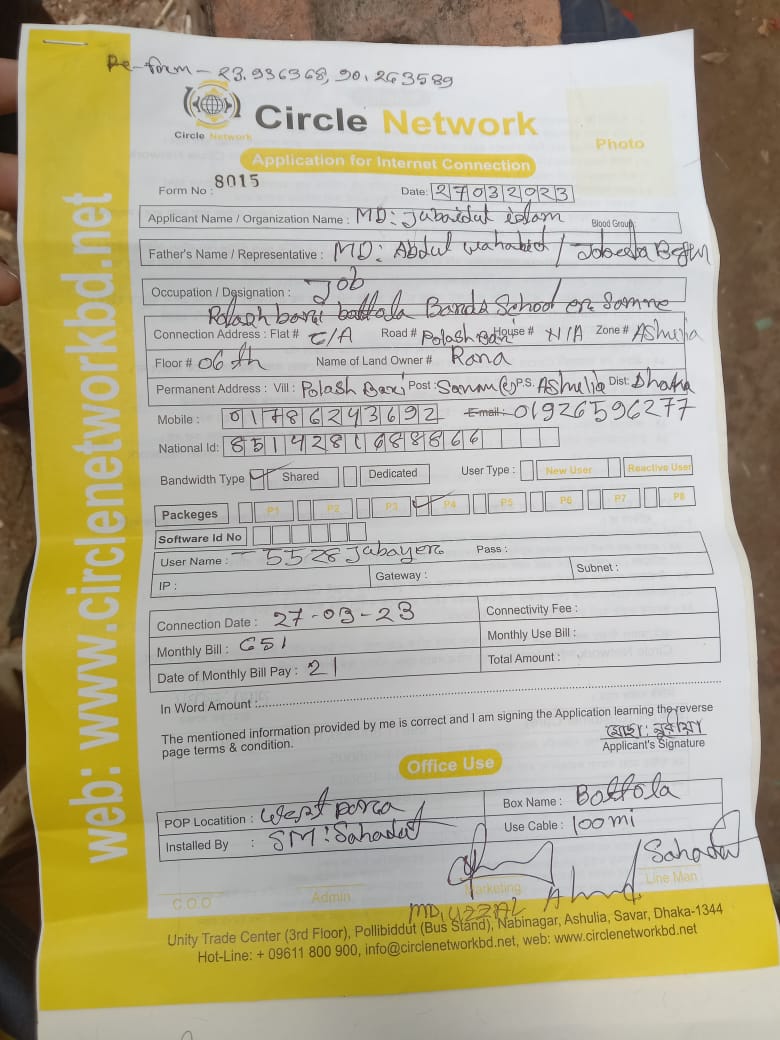 Re-form - 23.936368, 90.263589
Circle Network
Circle Network
Photo
Application for Internet Connection
Form No : 8015
Date: 27032023
Applicant Name / Organization Name : MD: Jubaidul islam
Blood Group
Father's Name / Representative : MD: Abdul /
Occupation / Designation : Job
Polash bari battola School
Connection Address : Flat # Road # Polash Bari House # N/A Zone # Ashulia
Floor # 06 th Name of Land Owner # Rana
Permanent Address : Vill : Polash Bari Post : P.S. Ashulia Dist: Dhaka
Mobile : 01786243692 Email: 01926596277
National Id: 8514281688866
Bandwidth Type Shared Dedicated User Type : New User Reactive User
Packeges P1 P2 P3 P4 P5 P6 P7 P8
Software Id No
User Name : 5528 Jubayer Pass :
IP : Gateway : Subnet :
Connection Date : 27-03-23 Connectivity Fee :
Monthly Bill : 651 Monthly Use Bill :
Date of Monthly Bill Pay : 21 Total Amount :
In Word Amount :
The mentioned information provided by me is correct and I am signing the Application learning the reverse
page terms & condition.
Applicant's Signature
Office Use
POP Locatition : West para Box Name : Battola
Installed By : SM: Sahadat Use Cable : 100 mi
Sahadat
C.O.O Admin Marketing Line Man
MD, UZZAL
Unity Trade Center (3rd Floor), Pollibiddut (Bus Stand), Nabinagar, Ashulia, Savar, Dhaka-1344
Hot-Line: + 09611 800 900, info@circlenetworkbd.net, web: www.circlenetworkbd.net
web: www.circlenetworkbd.net